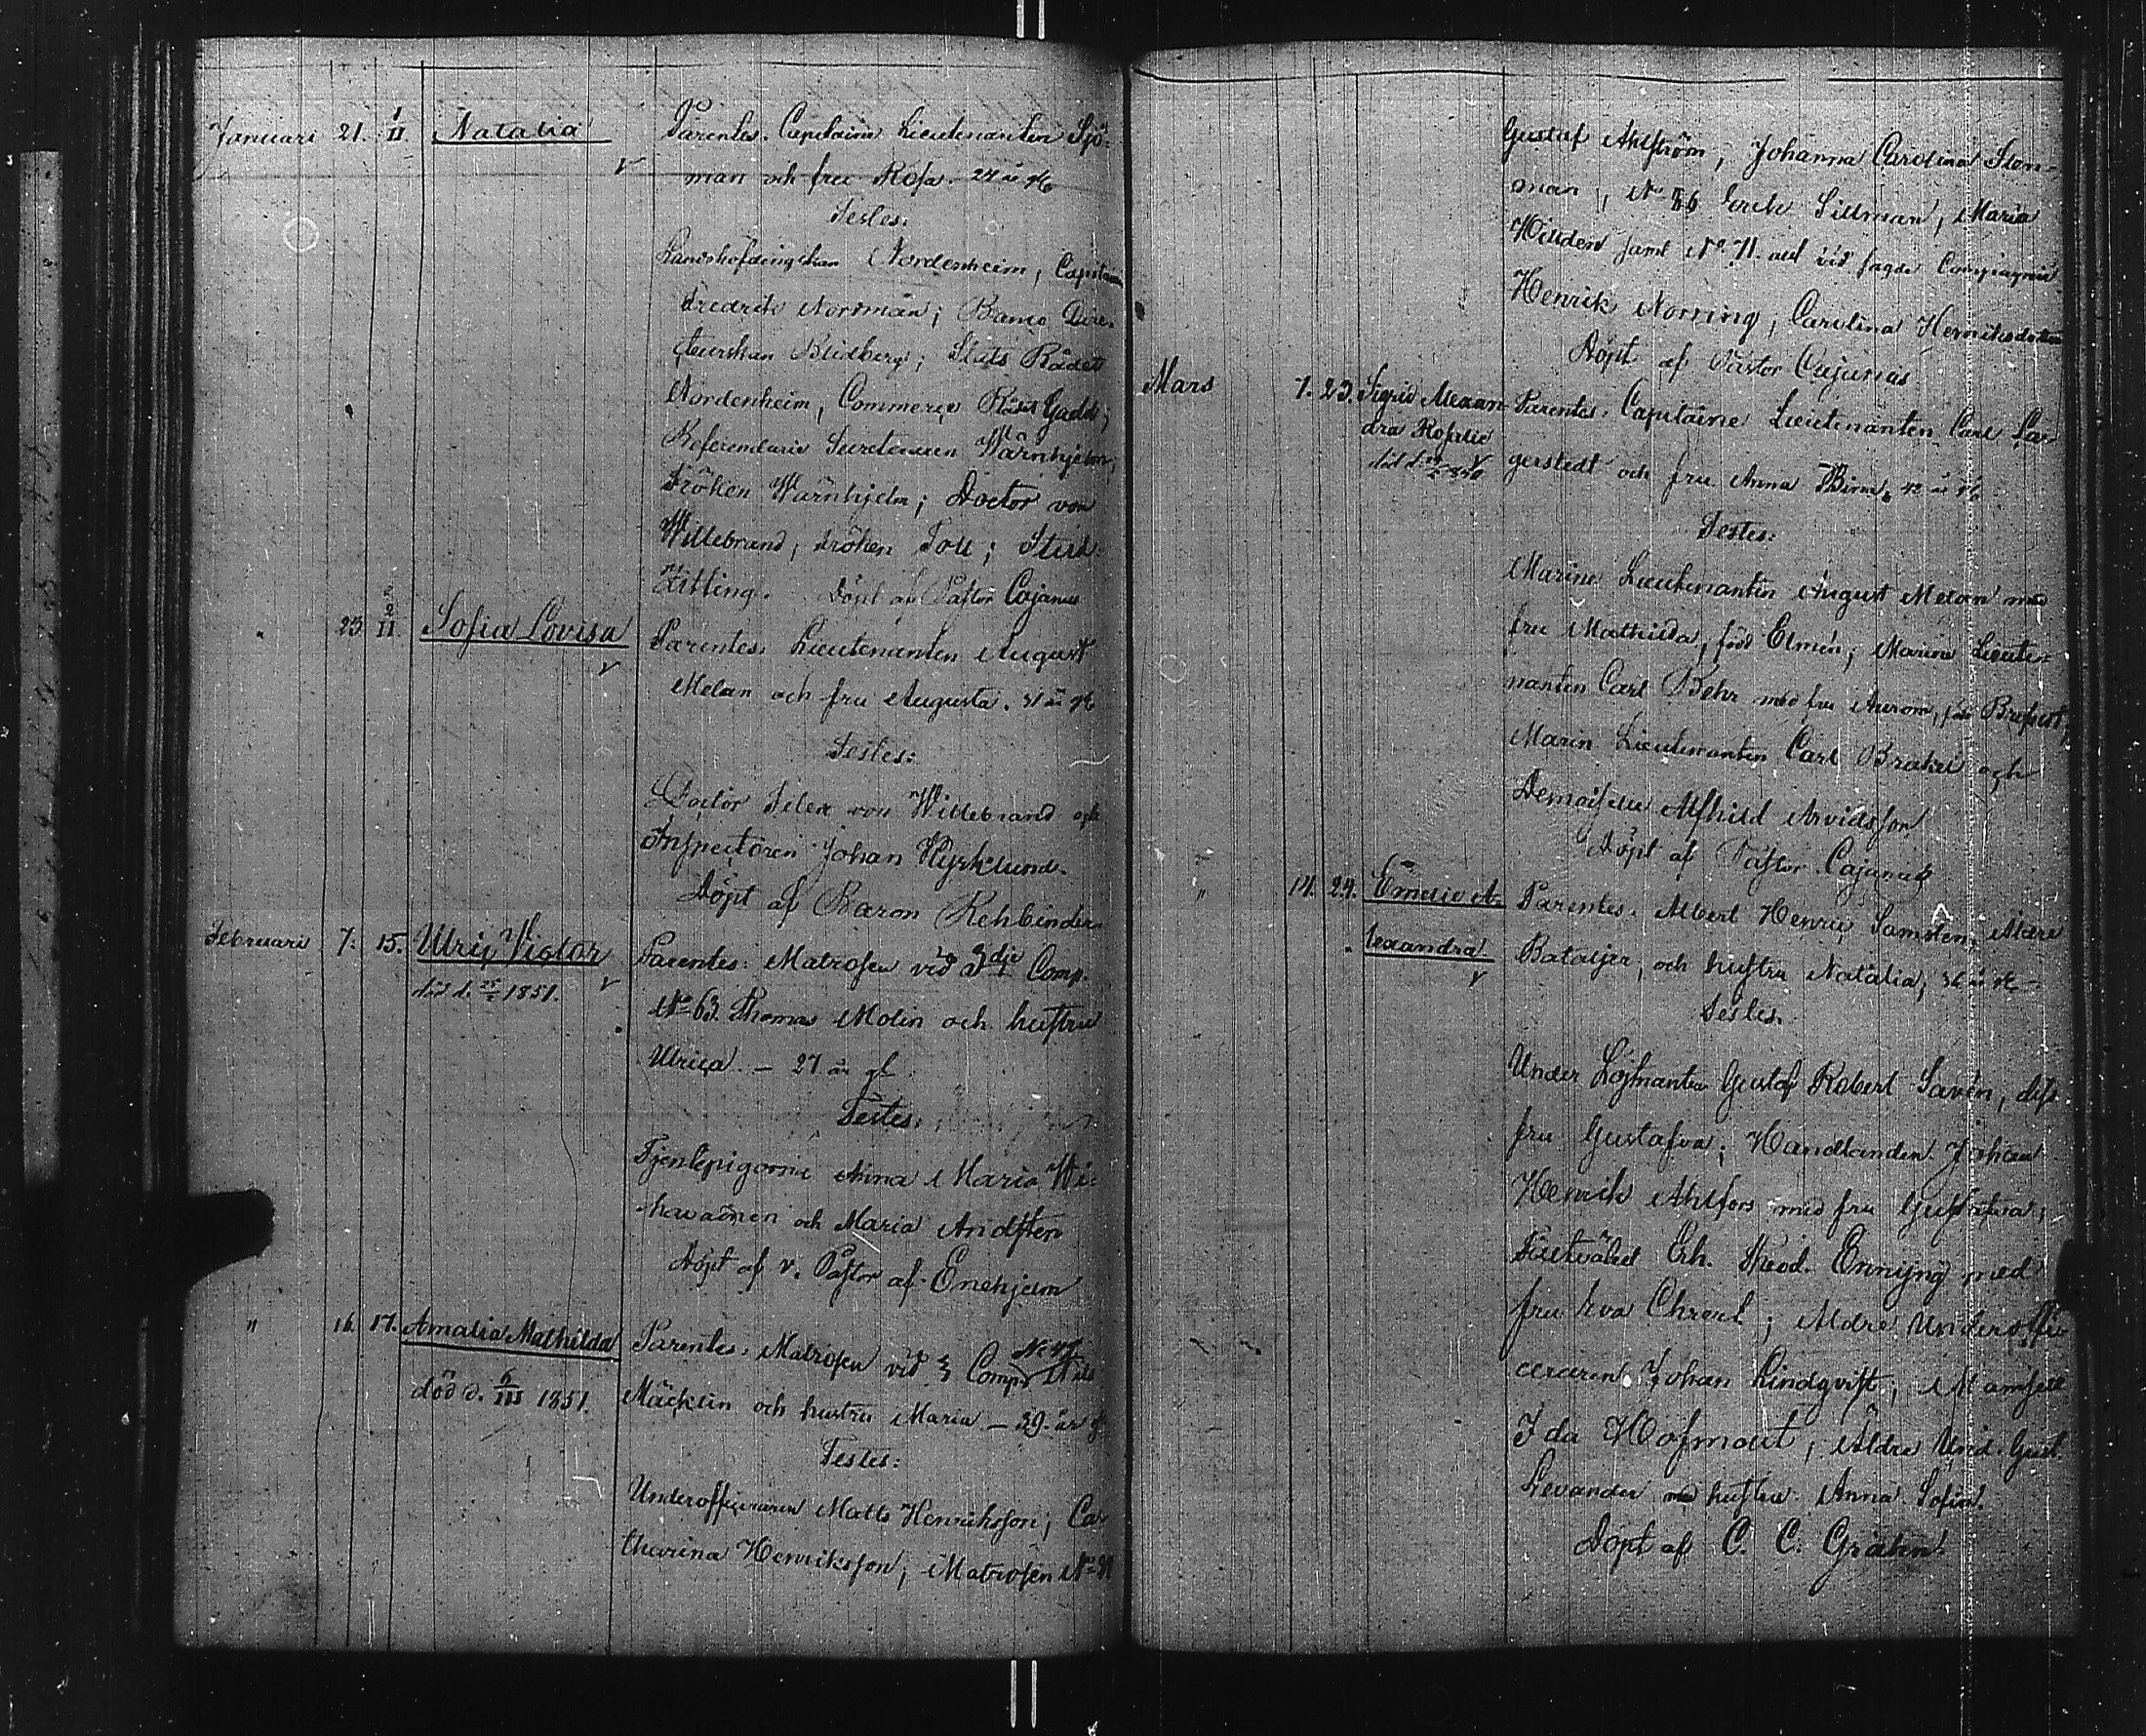 Januari 21. 1/II. Natalia Parentes. Capitaine Lieutenanten Spö-
man och fru Rosa. 27 år
Testes:
Landshöfdingskan Nordenheim, Capitain
Fredrik Norrman; Banco Direc-
teurskan Blidberg; Stats Rådet
Nordenheim, Commerce Rådet Gadd;
Referendarie Secreteraren Wärnhjelm,
Fröken Wärnhjelm; Doctor von
Willebrand, Fröken Toll; Stud.
Zitting. Döpt af Pastor Cajanus
" 23 2/II. Sofia Lovisa Parentes: Lieutenanten August
Melan och fru Augusta. 31 år
Testes:
Doctor von Willebrand och
Inspectoren Johan Kyrklund.
Döpt af Baron Rehbinder
Februari 7. 15. Ulric Victor Parentes: Matrosen vid 3dje Comp.
död d. 1851. No 63. Thomas Molin och hustru
Ulrica – 27 år gl
Testes:
Tjenstepigorna Anna Maria Wi-
havainen och Maria Andsten
Döpt af v. Pastor af Enehjelm
" 16. 17. Amalia Mathilda Parentes: Matrosen vid 3 Comp. No
död d. 6/III 1851. Mäcklin och hustru Maria – 39 år g.
Testes:
Underofficeraren Matts Henriksson; Ca-
tharina Henriksson; Matrosen No
Gustaf Ahlström; Johanna Carolina Sten-
man, No 86 Erik Sillman, Maria
Willden samt No 71. all vid sagde Compagnie
Henrik Norring, Carolina Henriksdotter
Döpt af Pastor Cajanus
Mars 7. 23. Sigrid Alexan- Parentes: Capitaine Lieutenanten Carl La-
dra Rosalie gerstedt och fru Anna 42 år
död d.
Testes:
Marine Lieutenanten August Melan med
fru Mathilda, född Elmén; Marine Lieute-
nanten Carl Behr med fru
Marin Lieutenanten Carl Brakel och
Demoiselle Alfhild Arvidsson
Döpt af Pastor Cajanus
" 14. 24. Emelie A- Parentes: Albert Henric Samsten, Äldre
lexandra Bataljer, och hustru Natalia, 36 år
Testes.
Under Löjtnanten Gustaf Robert Savén, dess
fru Gustafva; Handlanden Johan
Henrik Ahlfors med fru Gustafva;
Theod. Ennyng med
fru Eva Charl; Äldre Underoffi-
ceraren Johan Lindqvist; Mamsell
Ida Hofmout; Äldre Und. Gust.
Levander med hustru Anna Sofia.
Döpt af C. C. Grahn.